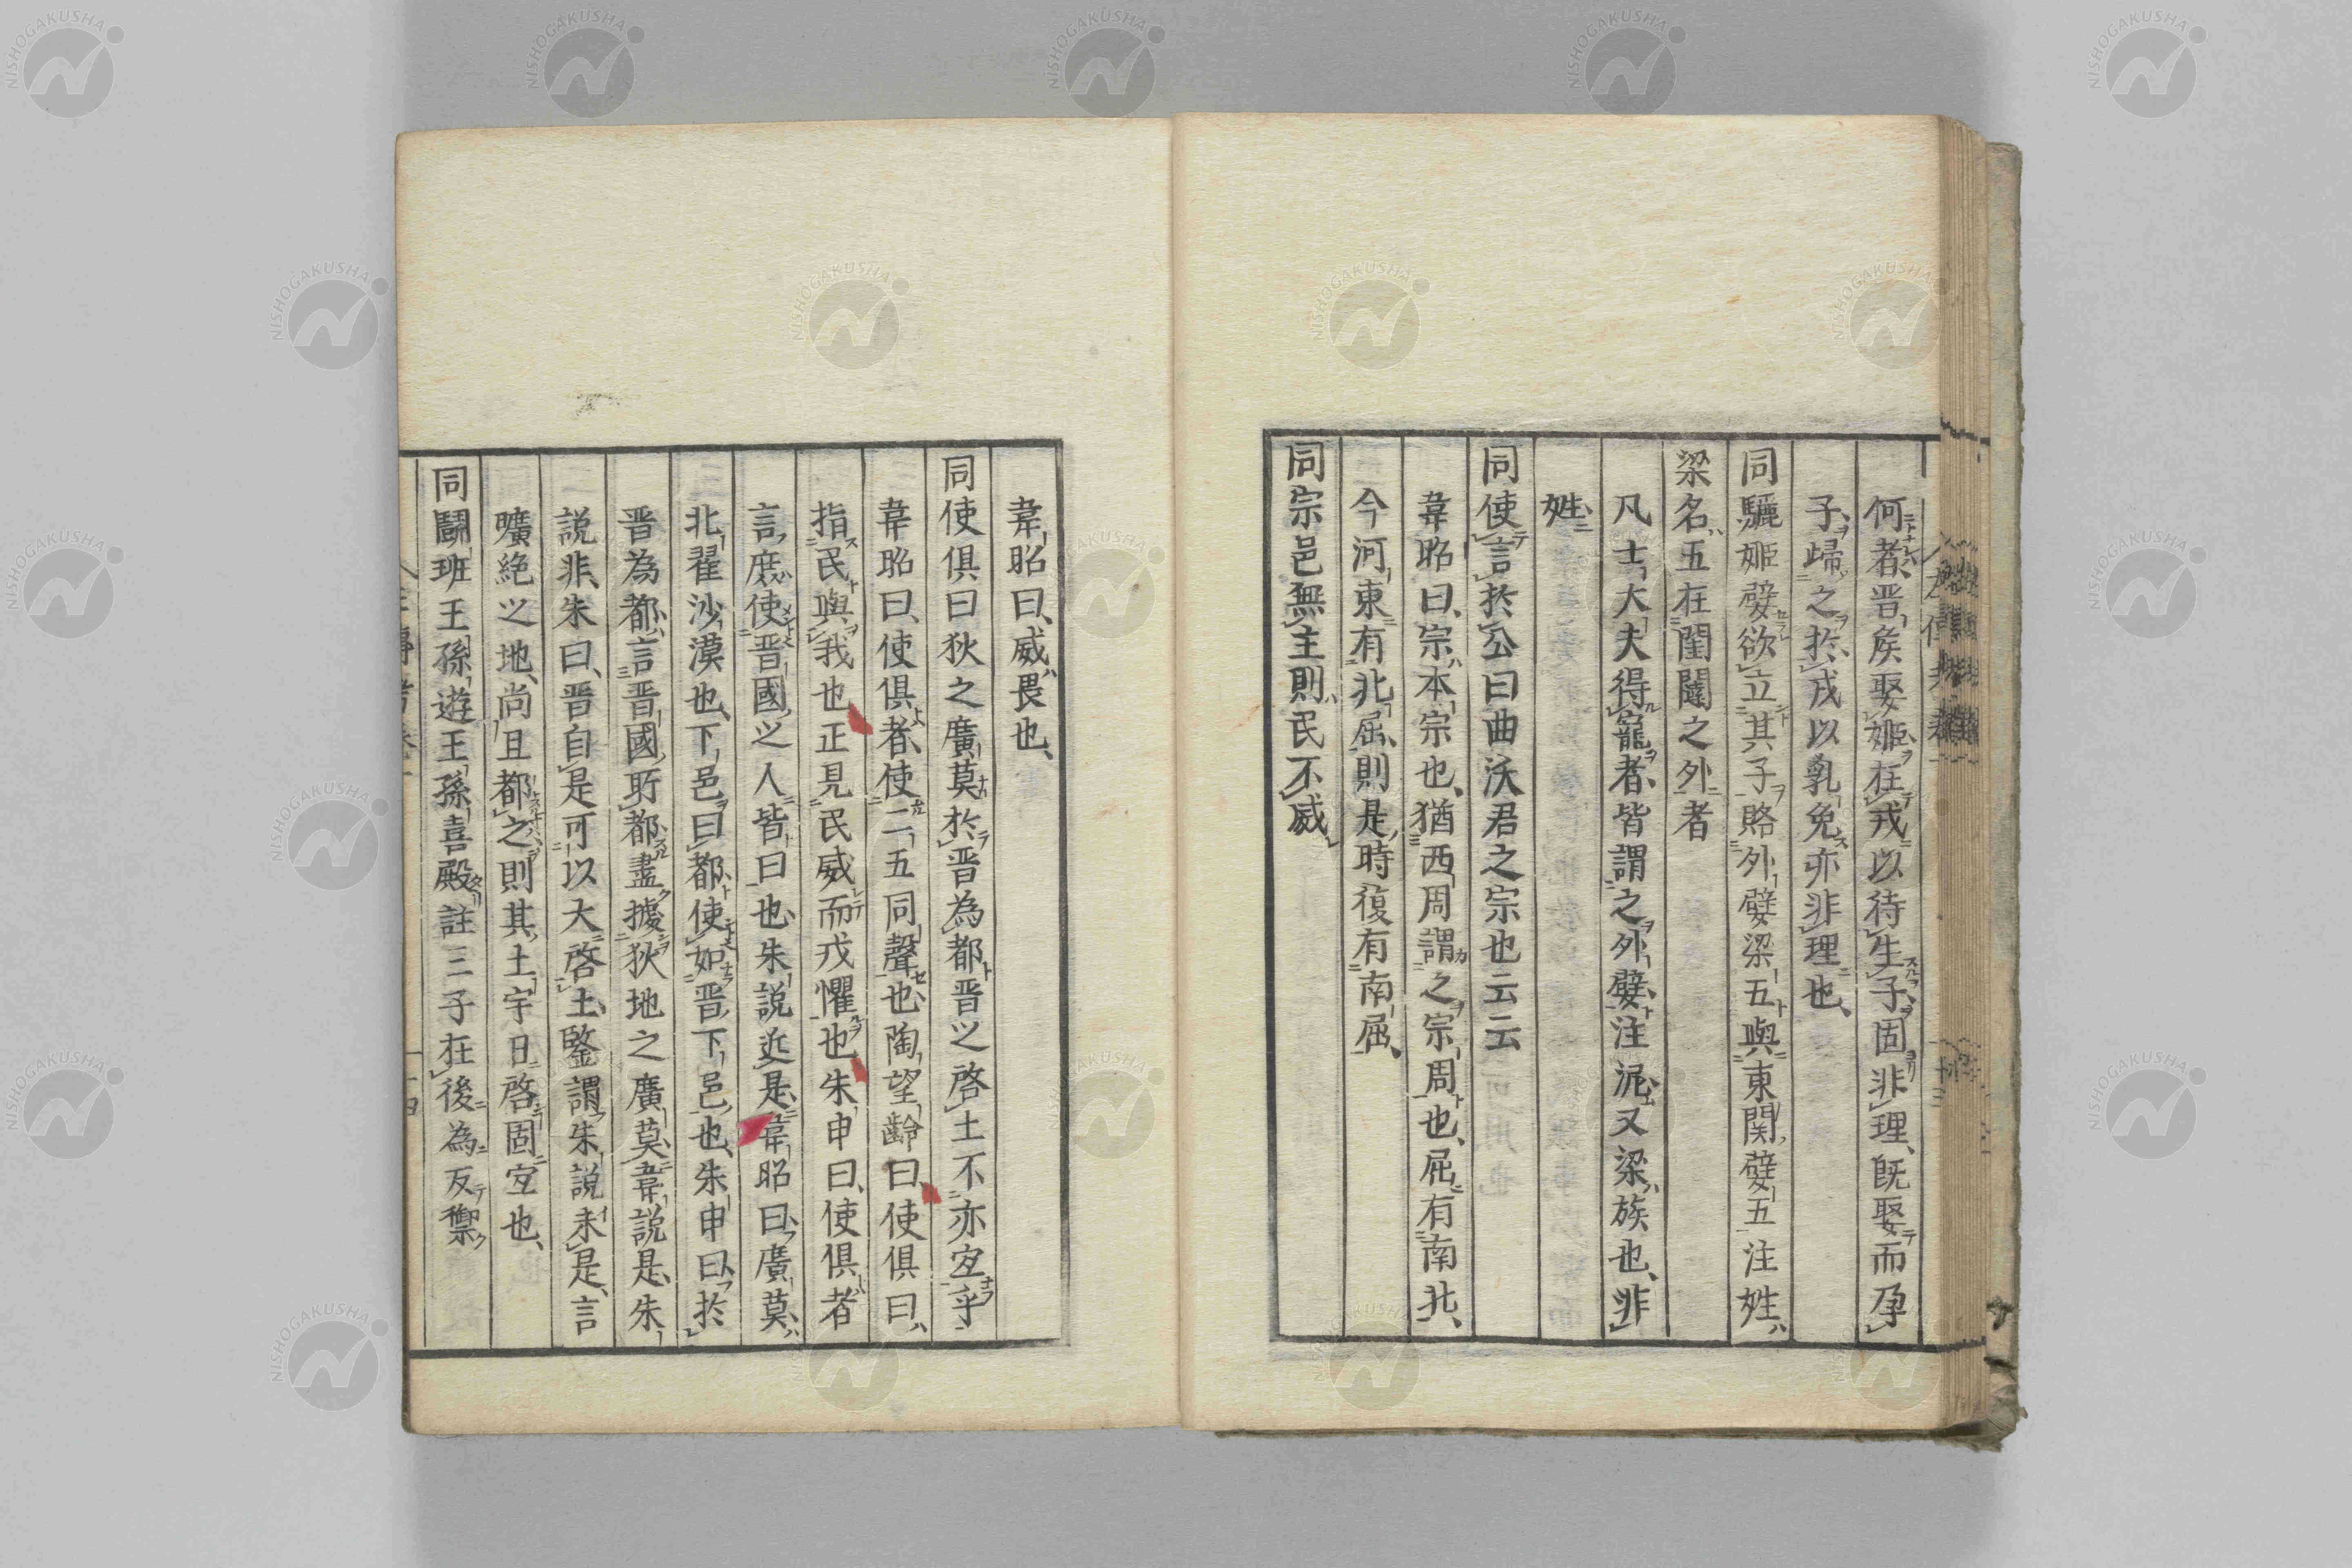 何者、晋侯娶姬在戎以待生子固非理、既娶而孕
子、歸之於戎以乳免亦非理也、
同驪姬嬖欲立其子賂外嬖梁五與東関嬖五 注姓
梁名五在閨闥之外者
凡士大夫得寵者、皆謂之外嬖、注泥又梁族也、非
姓
同使言於公曰曲沃君之宗也云云
韋昭曰、宗本宗也、猶西周謂之宗周也、屈有南北、
今河東有北屈、則是時復有南屈、
同宗邑無主則民不威
韋昭曰、威畏也、
同使俱曰狄之廣莫於晋為都晋之啓土不亦宜乎
韋昭曰、使俱者、使二五同聲也、陶望齡曰、使俱曰、
指民與我也正見民威而戎懼也朱申曰、使俱者
言、庶使晋國之人皆曰也、朱說近是、韋昭曰、廣莫、
北翟沙漠也、下邑曰都、使如晋下邑也、朱申曰、於
晋為都、言晋國所都、盡據狄地之廣莫、韋說是、朱
說非、朱曰、晋自是可以大啓土、鑒謂朱說未是、言
曠絶之地、尚且都之、則其土宇日啓固宜也、
同鬬班王孫遊王孫喜殿 註三子在後為反禦